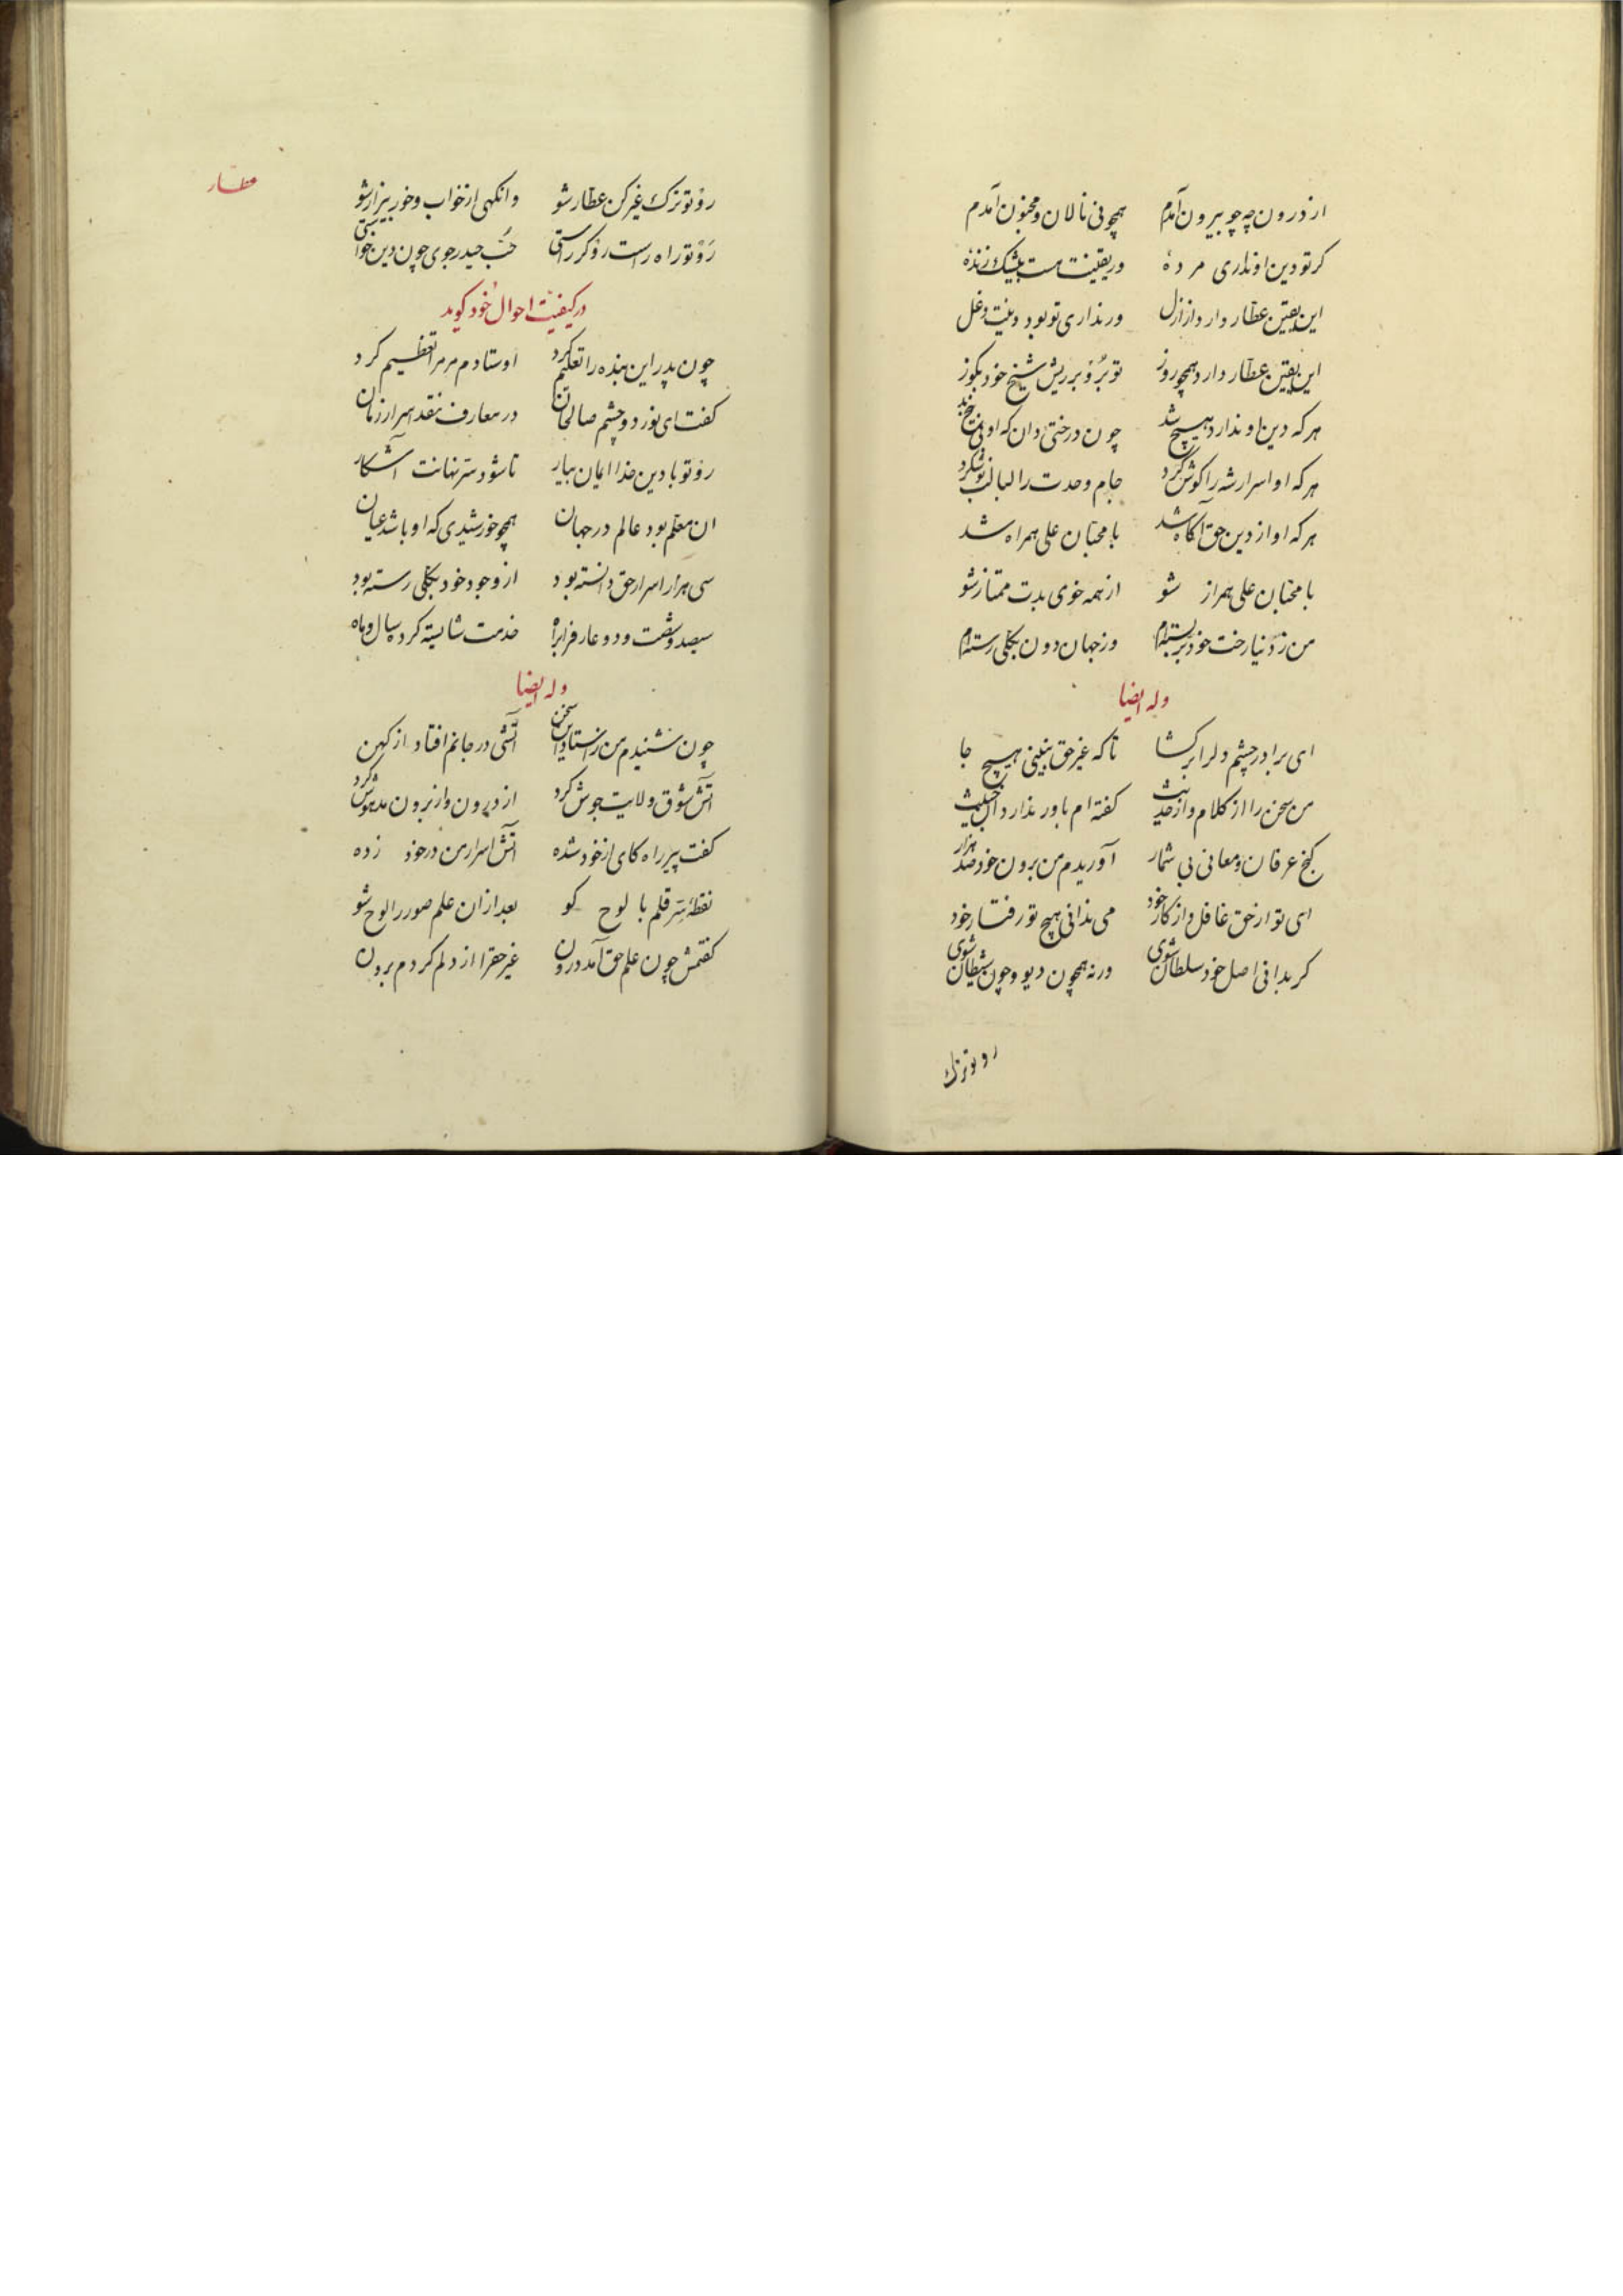 از درون چه چو بیرون آمدم همچو نی نالان و مجنون آمدم
کر تو دین او نداری مردهٔ ور یقینت هست بیشک زندهٔ
این یقین عطار دارد از ازل ور نداری تو بود دینت دغل
این یقین عطار دارد همچو روز تو برو بر ریش شیخ خود بکوز
هر که دین او ندارد هیچ شد چون درختی دان که او بی بیخ شد
هر که او اسرار شه را کوش کرد جام وحدت را لبالب نوش کرد
هر که او از دین حق آکاه شد با محبان علی همراه شد
با محبان علی همراز شو از همه خوی بدت ممتاز شو
من ز دنیا رخت خود بر بسته‌ام وز جهان دون بکلی رسته‌ام
وله ایضا
ای برادر چشم دل را بر کشا تا که غیر حق نبینی هیچ جا
من سخن را از کلام و از حدیث کفته‌ام باور ندارد آن خبیث
کنج عرفان و معانی بی شمار آوریدم من برون خود صد هزار
ای تو از حق غافل و از کار خود می ندانی هیچ تو رفتار خود
کر بدانی اصل خود سلطان شوی ورنه همچون دیو و چون شیطان شوی
رو تو ترک
عطار
رو تو ترک غیر کن عطار شو وانکهی از خواب و خور بیزار شو
رو تو راه راست رو کر راستی حب حیدر جوی چون دین خواستی
در کیفیت احوال خود کوید
چون پدر این بنده را تعلیم کرد اوستادم مر مرا تعظیم کرد
کفت ای نور دو چشم صالحان در معارف نقد اسرار زمان
رو تو با دین خدا ایمان بیار تا شود سر نهانت آشکار
ان معلم بود عالم در جهان همچو خورشیدی که او باشد عیان
سی هزار اسرار حق دانسته بود از وجود خود بکلی رسته بود
سیصد و شصت و دو عارف را براه خدمت شایسته کرده سال و ماه
وله ایضا
چون شنیدم من ز استاد این سخن آتشی در جانم افتاد از کهن
آتش شوق ولایت جوش کرد از درون و از برون مدهوش کرد
کفت پیر راه کای از خود شده آتش اسرار من در خود زده
نقطهٔ سر قلم با لوح کو بعد از ان علم صور را لوح شو
کفتمش چون علم حق آمد درون غیر حق را از دلم کردم برون